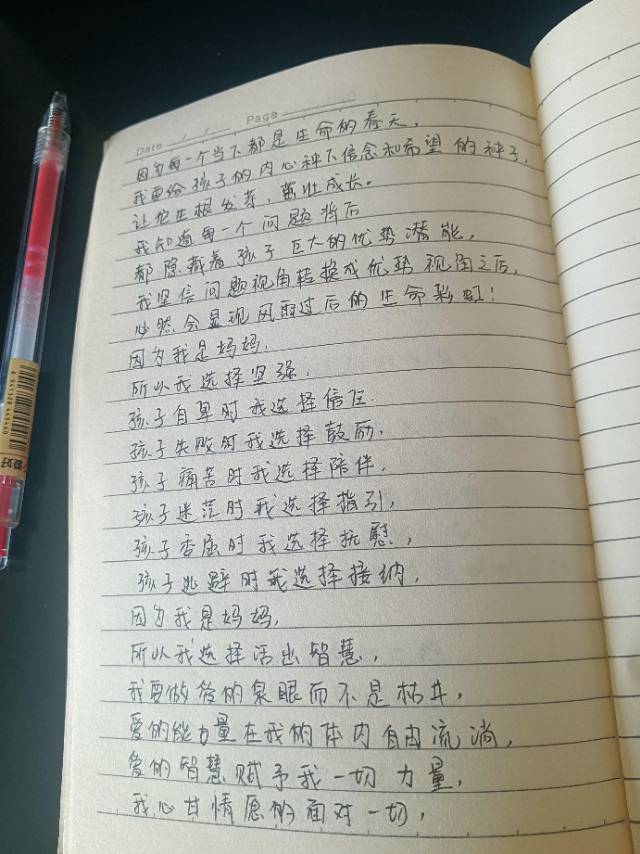 Date / / Page
因为每一个当下都是生命的春天,
我要给孩子的内心种下信念和希望的种子,
让他生根发芽,茁壮成长。
我知道每一个问题背后
都隐藏着孩子巨大的优势潜能,
我坚信问题视角转换成优势视角之后,
必然会显现风雨过后的生命彩虹!
因为我是妈妈,
所以我选择坚强,
孩子自卑时我选择信任.
孩子失败时我选择鼓励,
孩子痛苦时我选择陪伴,
孩子迷茫时我选择指引,
孩子委屈时我选择抚慰,
孩子逃避时我选择接纳,
因为我是妈妈,
所以我选择活出智慧,
我要做爱的泉眼而不是枯井,
爱的能力量在我的体内自由流淌,
爱的智慧赋予我一切力量,
我心甘情愿的面对一切,